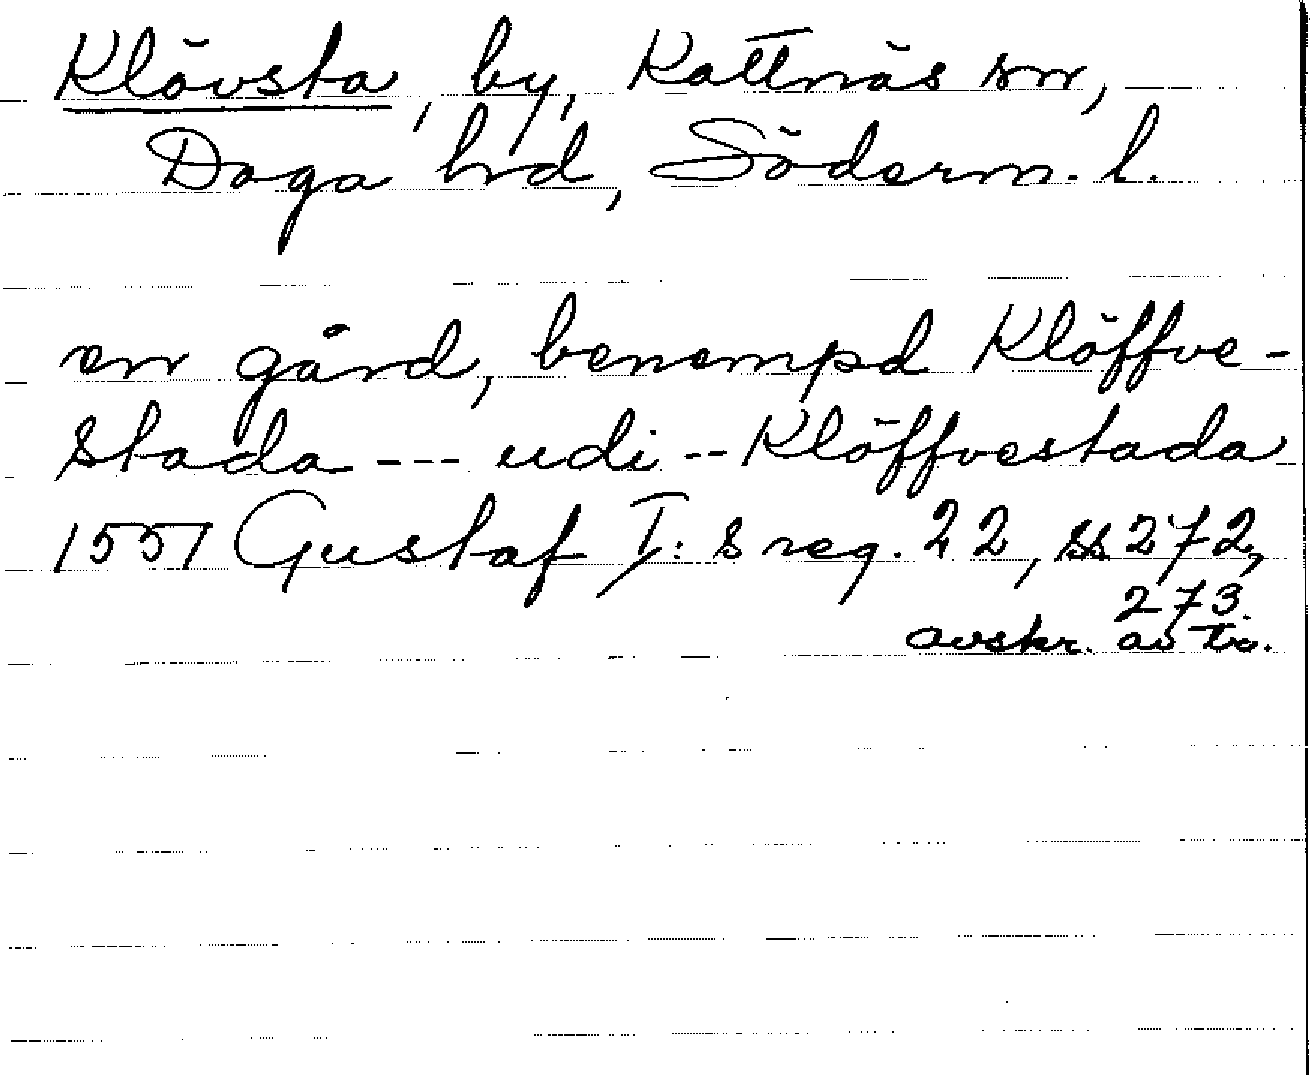 Klövsta, by, Kattnäs sn,
Daga hd, Söderm. l.
en gård, benempd Klöffve-
stada --- udi -- Klöffvestada
1551 Gustaf I: s reg. 22, ss 272,
273
avskr. av tr.